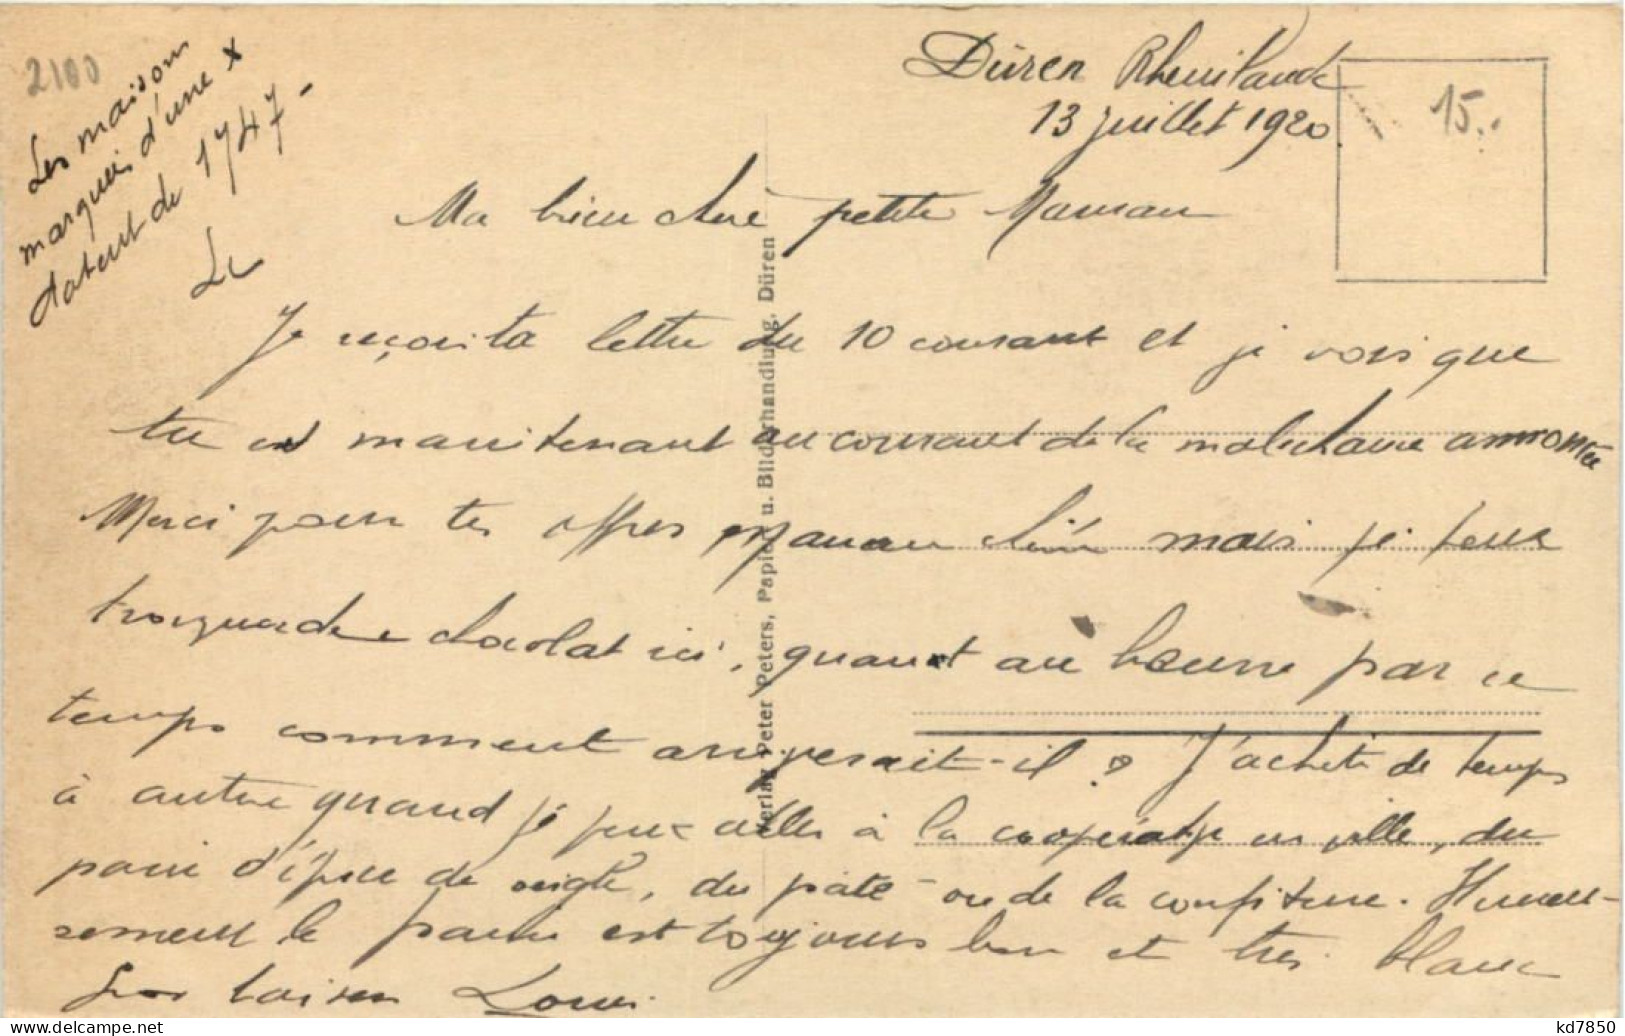 2100
Les maisons
marquées d'une x
datent de 1747 -
L
Düren Rheinlande
13 juillet 1920
15..
Ma bien chère petite Maman
Je reçois ta lettre du 10 courant et je vois que
tu es maintenant au courant de la malechance
Merci pour tes offres Maman chérie mais je peux
chocolat ici, quant au beurre par ce
temps comment arriverait-il ? J'achète de temps
à autre quand je peux aller à la coopérative en ville, du
pain d'épice de seigle, du pâté ou de la confiture. Heureu-
sement le pain est toujours bon et très blanc
Gros baisers Louis
Verlag Peter Peters, Papier u. Bilderhandlung, Düren
kd7850